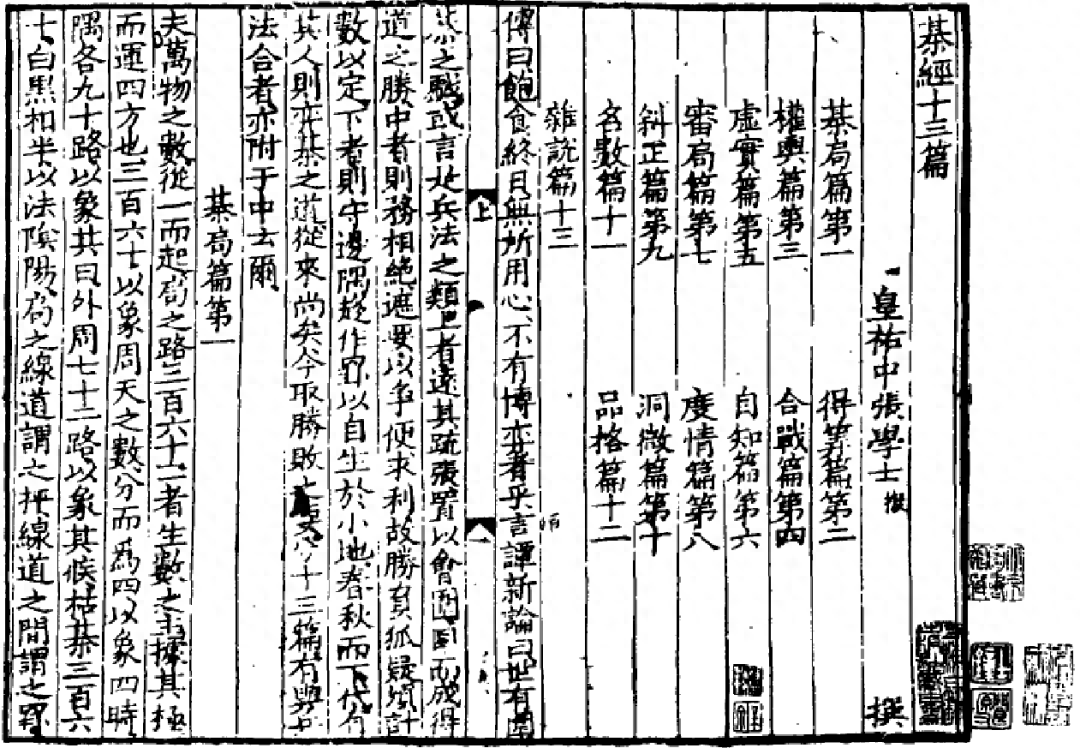 棊經十三篇
皇祐中張學士 撰
棊局篇第一 得筭篇第二
權輿篇第三 合戰篇第四
虛實篇第五 自知篇第六
審局篇第七 度情篇第八
斜正篇第九 洞微篇第十
名數篇十一 品格篇十二
雜說篇十三
傳曰飽食終日無所用心不有博弈者乎言譚新論曰世有圍
棊之戲或言是兵法之類上者遠其疏張置以會圍因而成得
道之勝中者則務相絶遮要以爭便求利故勝負狐疑須計
數以定下者則守邊隅趍作罫以自生於小地春秋而下代有
其人則弈棊之道從來尚矣今取勝敗之要分十三篇有與兵
法合者亦附于中云爾
棊局篇第一
夫萬物之數從一而起局之路三百六十一一者生數之主據其極
而運四方也三百六十以象周天之數分而爲四以象四時
隅各九十路以象其日外周七十二路以象其候枯棊三百六
十白黑相半以法陰陽局之線道謂之枰線道之間謂之罫
上
一